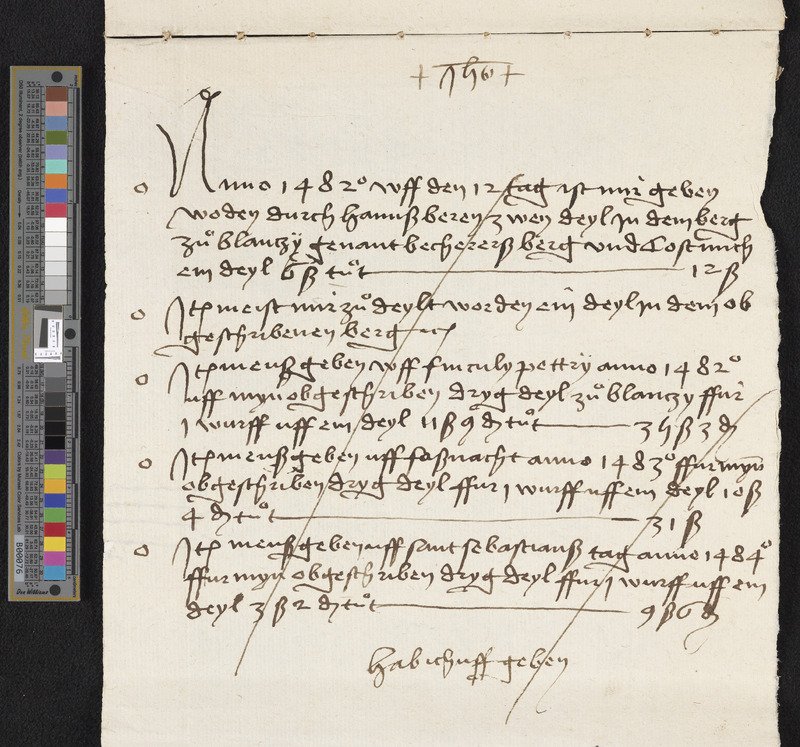 + Jhs +
Anno 1482° uff den 12 tag ist mir geben
worden durch hannß beren zwen deyl in dem berg
zuͦ blanczy genant bechererß berg und kost mich
ein deyl 6 ß tuͦt 12 ß
Jtem me ist mir zuͦ deylt worden ein deyl in dem ob
geschribenen berg
Jtem me uß geben uff sin culy pettry anno 1482°
uff myn obgeschriben dryg deyl zuͦ blanczy ffur
1 wurff uff ein deyl 11 ß 9 d tuͦt 35 ß 3 d
Jtem me uß geben uff faßnacht anno 1483° ffur myn
obgeschriben dryg deyl ffur 1 wurff uff ein deyl 10 ß
4 d tuͦt 31 ß
Jtem me uß geben uff sant sebastianß tag anno 1484°
ffur myn obgeschriben dryg deyl ffur 1 wurff uff ein
deyl 3 ß 2 d tuͦt 9 ß 6 d
hab ich uff geben